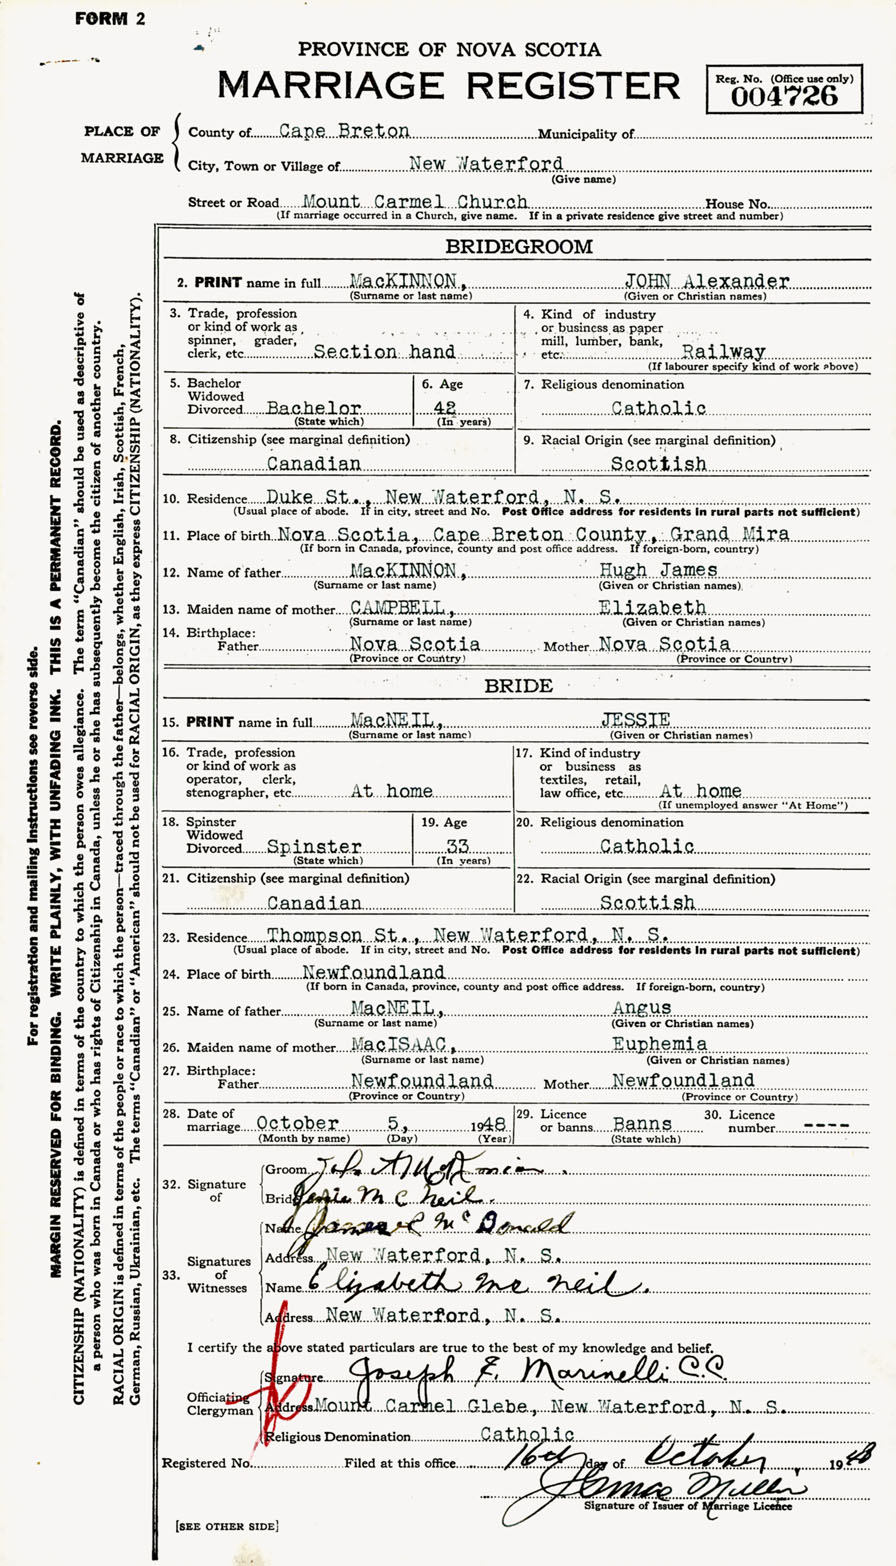 FORM 2
PROVINCE OF NOVA SCOTIA
MARRIAGE REGISTER
Reg. No. (Office use only)
004726
PLACE OF MARRIAGE
County of Cape Breton Municipality of
City, Town or Village of New Waterford
(Give name)
Street or Road Mount Carmel Church House No.
(If marriage occurred in a Church, give name. If in a private residence give street and number)
BRIDEGROOM
2. PRINT name in full MacKINNON, JOHN Alexander
(Surname or last name) (Given or Christian names)
3. Trade, profession
or kind of work as
spinner, grader,
clerk, etc. Section hand
4. Kind of industry
or business as paper
mill, lumber, bank,
etc. Railway
(If labourer specify kind of work above)
5. Bachelor
Widowed
Divorced Bachelor
(State which)
6. Age
42
(In years)
7. Religious denomination
Catholic
8. Citizenship (see marginal definition)
Canadian
9. Racial Origin (see marginal definition)
Scottish
10. Residence Duke St., New Waterford, N. S.
(Usual place of abode. If in city, street and No. Post Office address for residents in rural parts not sufficient)
11. Place of birth Nova Scotia, Cape Breton County, Grand Mira
(If born in Canada, province, county and post office address. If foreign-born, country)
12. Name of father MacKINNON, Hugh James
(Surname or last name) (Given or Christian names)
13. Maiden name of mother CAMPBELL, Elizabeth
(Surname or last name) (Given or Christian names)
14. Birthplace:
Father Nova Scotia Mother Nova Scotia
(Province or Country) (Province or Country)
BRIDE
15. PRINT name in full MacNEIL, JESSIE
(Surname or last name) (Given or Christian names)
16. Trade, profession
or kind of work as
operator, clerk,
stenographer, etc. At home
17. Kind of industry
or business as
textiles, retail,
law office, etc. At home
(If unemployed answer "At Home")
18. Spinster
Widowed
Divorced Spinster
(State which)
19. Age
33
(In years)
20. Religious denomination
Catholic
21. Citizenship (see marginal definition)
Canadian
22. Racial Origin (see marginal definition)
Scottish
23. Residence Thompson St., New Waterford, N. S.
(Usual place of abode. If in city, street and No. Post Office address for residents in rural parts not sufficient)
24. Place of birth Newfoundland
(If born in Canada, province, county and post office address. If foreign-born, country)
25. Name of father MacNEIL, Angus
(Surname or last name) (Given or Christian names)
26. Maiden name of mother MacISAAC, Euphemia
(Surname or last name) (Given or Christian names)
27. Birthplace:
Father Newfoundland Mother Newfoundland
(Province or Country) (Province or Country)
28. Date of
marriage October 5, 1948
(Month by name) (Day) (Year)
29. Licence
or banns Banns
(State which)
30. Licence
number ----
32. Signature of
Groom John A
Bride Jessie Mc Neil.
33. Signatures of Witnesses
Name James Mc Donald
Address New Waterford, N. S.
Name Elizabeth Mc Neil.
Address New Waterford, N. S.
I certify the above stated particulars are true to the best of my knowledge and belief.
Officiating Clergyman
Signature Joseph F. Marinelli C.C.
Address Mount Carmel Glebe, New Waterford, N. S.
Religious Denomination Catholic
Registered No. Filed at this office 16th day of October, 1948
Thomas
Signature of Issuer of Marriage Licence
[SEE OTHER SIDE]
For registration and mailing instructions see reverse side.
MARGIN RESERVED FOR BINDING. WRITE PLAINLY, WITH UNFADING INK. THIS IS A PERMANENT RECORD.
CITIZENSHIP (NATIONALITY) is defined in terms of the country to which the person owes allegiance. The term "Canadian" should be used as descriptive of
a person who was born in Canada or who has rights of Citizenship in Canada, unless he or she has subsequently become the citizen of another country.
RACIAL ORIGIN is defined in terms of the people or race to which the person—traced through the father—belongs, whether English, Irish, Scottish, French,
German, Russian, Ukrainian, etc. The terms "Canadian" or "American" should not be used for RACIAL ORIGIN, as they express CITIZENSHIP (NATIONALITY).